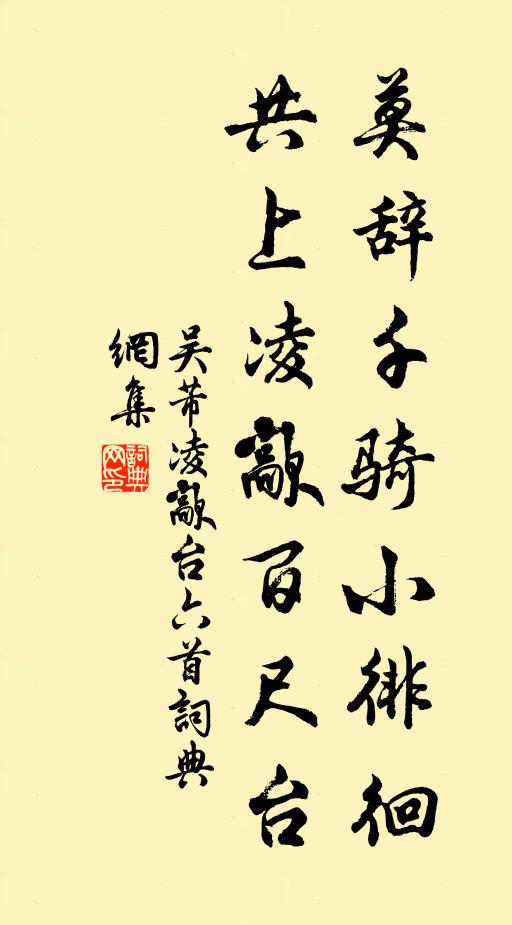 莫辞千骑小徘徊
共上凌歊百尺台
吴芾凌歊台六首詞典
網集
詞典网印